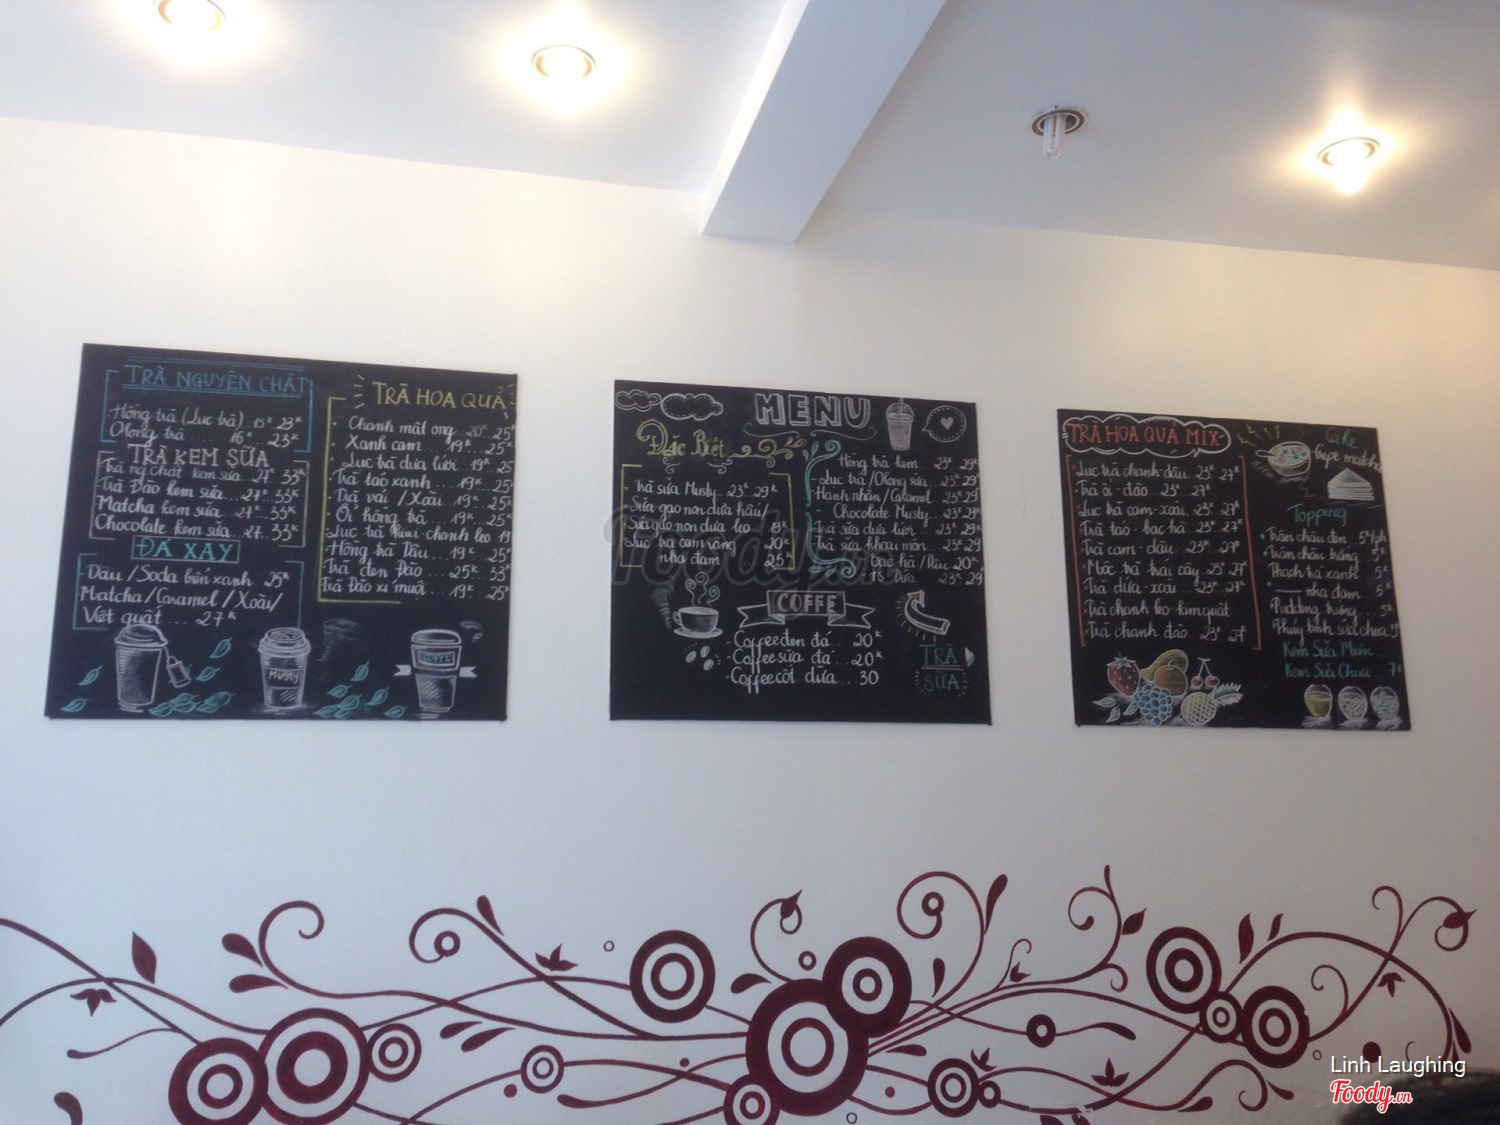 TRÀ NGUYÊN CHẤT
Hồng trà (Lục trà) 15K 23K
Olong trà .... 16K 23K
TRÀ KEM SỮA
Trà ng.chất kem sữa 27K 33K
Trà Đào kem sữa ... 27K 33K
Matcha kem sữa ... 27K 33K
Chocolate kem sữa .. 27. 33K
ĐÁ XAY
Dâu /Soda biển xanh 25K
Matcha/Caramel /Xoài/
Việt quất ... 27K
MUSTY
COFFEE
TRÀ HOA QUẢ
Chanh mật ong 20K 25K
Xanh cam ... 19K ... 25K
Lục trà dưa lưới 19K 25
Trà táo xanh ... 19K .. 25K
Trà vải /Xoài . 19K .. 25K
Ổi hồng trà ... 19K .. 25K
Lục trà kiwi-chanh leo 19
Hồng trà Dâu .. 19K ... 25K
Trà đen Đào .. 25K .. 33K
Trà Đào xí muội . 19K ... 25K
MENU
Đặc Biệt
Trà sữa Musty 23K 29K
Sữa gạo non dừa hấu/
Sữa gạo non dưa leo 19K
Lục trà cam vàng 20K
nha đam 25K
Hồng trà kem 23K 29K
Lục trà/Olong sữa .. 23K 29
Hạnh nhân/Caramel 23K 29
Chocolate Musty ... 23K 29K
Trà sữa dưa lưới ... 23K 29K
Trà sữa khoai môn .. 23K 29
Bạc hà / Dâu 20K
TS Dừa 23K 29
COFFE
- Coffee đen đá ... 20K
- Coffee sữa đá ... 20K
- Coffee cốt dừa .. 30
TRÀ
SỮA
TRÀ HOA QUẢ MIX
Lục trà chanh-dâu 23K 27K
Trà ổi - đào .. 23K 27K
Lục trà cam-xoài 23K 27K
Trà táo - bạc hà 23K 27K
Trà cam - dâu .. 23K 27K
Mộc trà trái cây 23K 27K
Trà dứa - xoài .. 23K 27K
Trà chanh leo-kim quất
Trà chanh đào 23K 27K
Cake
Crepe matcha
Topping
Trân châu đen 5K/ph
Trân châu trắng 5K
Thạch trà xanh 5K
nha đam 5K
Pudding trứng ... 5K
Thủy tinh sữa chua 5
Kem Sữa Mặn
Kem Sữa Chua 7K
Foody.vn
Linh Laughing
Foody.vn